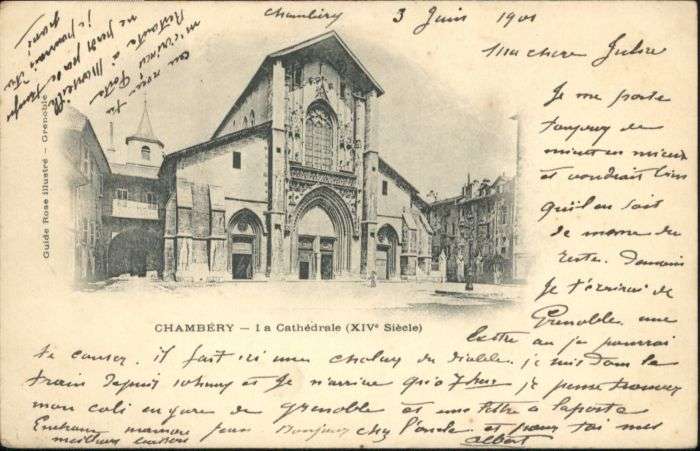 Chambéry 3 Juin 1901
Ma chere Juline
Je me porte
toujours de
mieux en mieux
et voudrait bien
qu'il en soit
de meme du
reste. Demain
Je t'écrirai de
Grenoble une
lettre ou je pourrai
te causer. il fait ici une chaleur du diable. je suis dans le
train depuis et Je n'arrive qu'a 7 hrs je pense trouver
mon coli en gare de Grenoble et une lettre a la poste
Embrasse maman pour Bonjour chez l'oncle et pour toi mes
meilleurs baisers Albert
Poste
Restante à Marseille
je pourrais
Guide Rose illustré — Grenoble
CHAMBÉRY — La Cathédrale (XIVe Siècle)